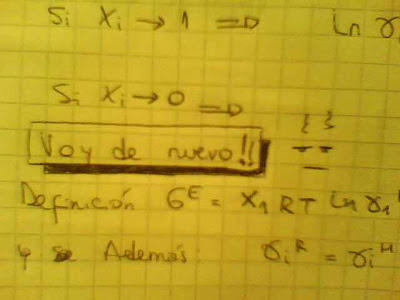 Si Xi → 1 ⇒ ln γ
Si Xi → 0 ⇒
Voy de nuevo!!
Definición G^E = X1 RT ln γ1
y Además: γi^R = γi^H